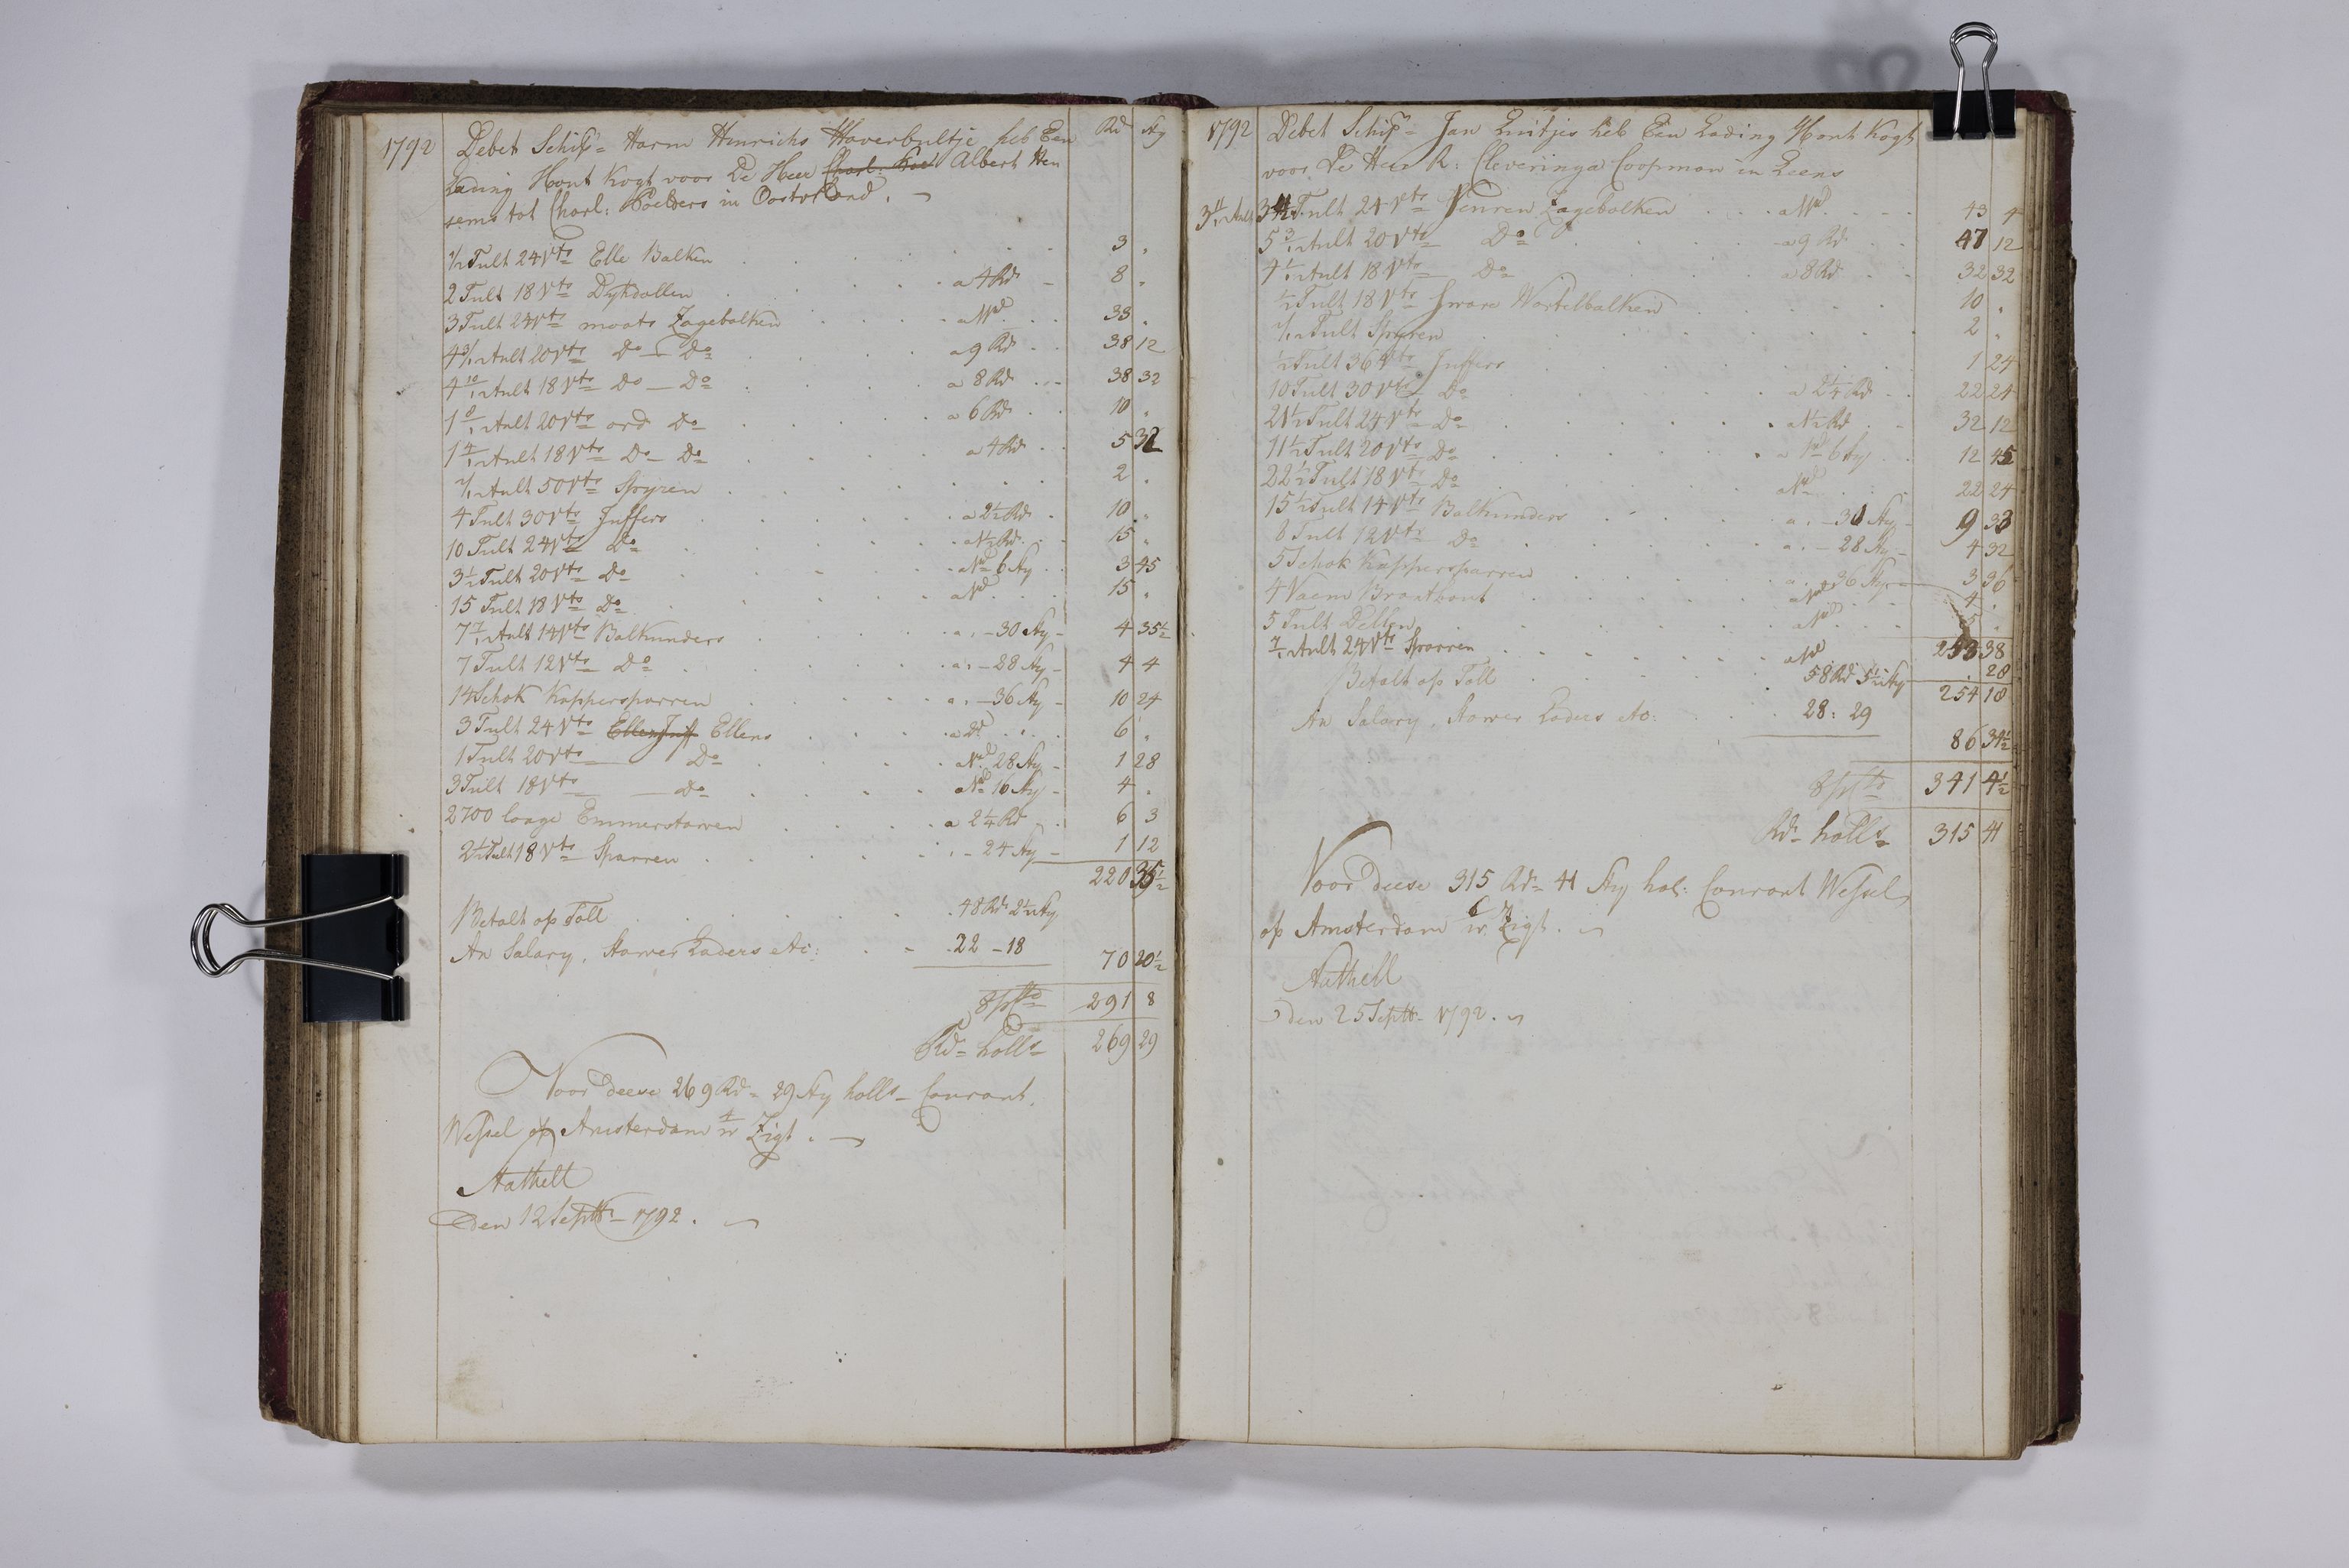 1792 Debet Schip= Harm Hinrichs Haverbultje heb Een Rd Sty
Lading Hout Kogt voor De Heer Charl: Albert Hen
sems tot Charl: Poelders in Oostvland.
1/12 Tult 24Vts Elle Balken 3 .
2 Tult 18Vts Dykdollen a 4 Rd 8 .
3 Tult 24Vts moats Zagebalken a 11Rd 33 .
4 3/12 Tult 20Vts Do Do a 9 Rd 38 12
4 10/12 Tult 18Vts Do Do a 8 Rd 38 32
1 8/12 Tult 20Vts ord Do a 6 Rd 10 .
1 4/12 Tult 18Vts Do Do a 4 Rd 5 32
1/12 Tult 50Vts Spyren 2 .
4 Tult 30Vts Juffers a 2½ Rd 10 .
10 Tult 24Vts Do a 1½ Rd 15 .
3½ Tult 20Vts Do a 1Rd 6 Sty 3 45
15 Tult 18Vts Do a 1Rd 15 .
7 7/12 Tult 14Vts Balkunders a . - 30 Sty 4 35½
7 Tult 12Vts Do a . - 28 Sty 4 4
14 Schok Kappersparren a . - 36 Sty 10 24
3 Tult 24Vts Ellen Juff Ellens a 2Rd 6 .
1 Tult 20Vts Do a 1Rd 28 Sty 1 28
3 Tult 18Vts Do a 1Rd 16 Sty 4 .
2700 lange Emmerstaven a 2¼ Rd 6 3
2½ Tult 18Vts Sparren . - 24 Sty 1 12
220 35½
Betalt op Toll 48 Rd 2½ Sty
An Salary, Stower Laders etc: 22 - 18 70 20½
Spto 291 8
Rd holls 269 29
Voor deese 269 Rd 29 Sty holls Courant
Wessel op Amsterdam Zigt.
Stathelt
Den 12 Septb 1792.
1792 Debet Schip= Jan Luitjes heb Een Lading Hout Kogt
voor De Heer R: Cleveringa Coopman in Leens
3 11/12 Tult 24Vts Venren Zagebalken a 11Rd 43 4
5 3/12 Tult 20Vts Do a 9 Rd 47 12
4 1/12 Tult 18Vts Do a 8 Rd 32 32
½ Tult 18Vts Sware Wortelbalken 10 .
1/12 Tult Spyren 2 .
½ Tult 36Vts Juffers 1 24
10 Tult 30Vts Do a 2¼ Rd 22 24
21½ Tult 24Vts Do a 1½ Rd 32 12
11½ Tult 20Vts Do a 1Rd 6 Sty 12 45
22½ Tult 18Vts Do a 1Rd 22 24
15½ Tult 14Vts Balkunders a . - 30 Sty 9 33
8 Tult 12Vts Do a . - 28 Sty 4 32
5 Schok Kappersparren a . - 36 Sty 3 36
4 Vaem Branthout a 1Rd 4 .
5 Tult Dellen a 1Rd 5 .
253 38
7/12 Tult 24Vts Sparren a 1Rd . 28
254 18
Betalt op Toll 58 Rd 5½ Sty
An Salary, Stower Laders etc: 28: 29
86 34½
Spto 341 4½
Rd holls 315 41
Voor deese 315 Rd 41 Sty hol: Courant Wessel
op Amsterdam Zigt.
Stathell
den 25 Septb 1792.